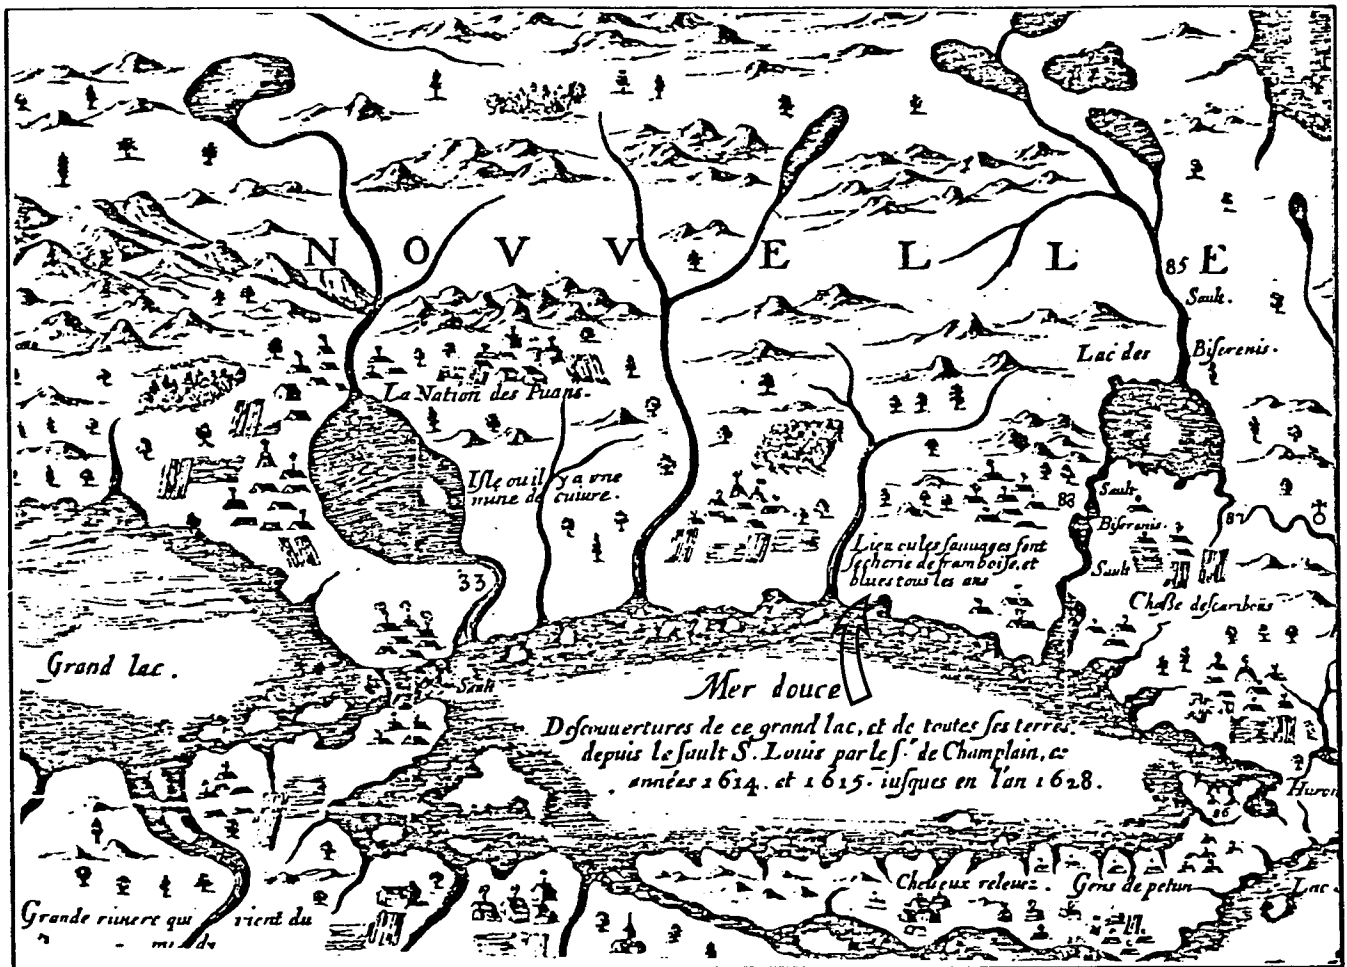 NOVVELLE
85
Sault.
Lac des Biserenis.
La Nation des Puans.
Isle ou il y a vne
mine de cuiure.
83
Sault
Biserenis.
82
Lieu ou les sauuages font
secherie de framboise, et
blues tous les ans
Sault
33
Chasse des caribous
Grand lac.
Sault
Mer douce
Descouuertures de ce grand lac, et de toutes ses terres.
depuis le sault St. Louis par le Sr. de Champlain, es
années 1614. et 1615. iusques en l'an 1628.
Huron
86
Cheueux releuez. Gens de petun
Lac.
Grande riuiere qui vient du
midy